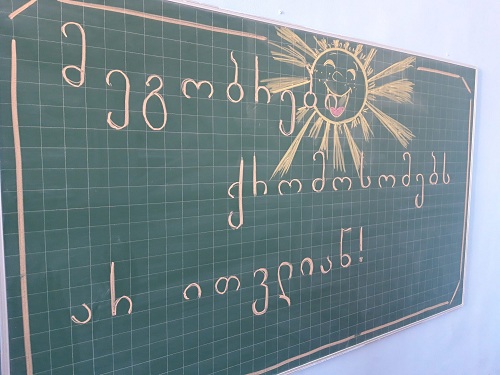 მეგობრები
ქრომოსომებს
არ ითვლიან!